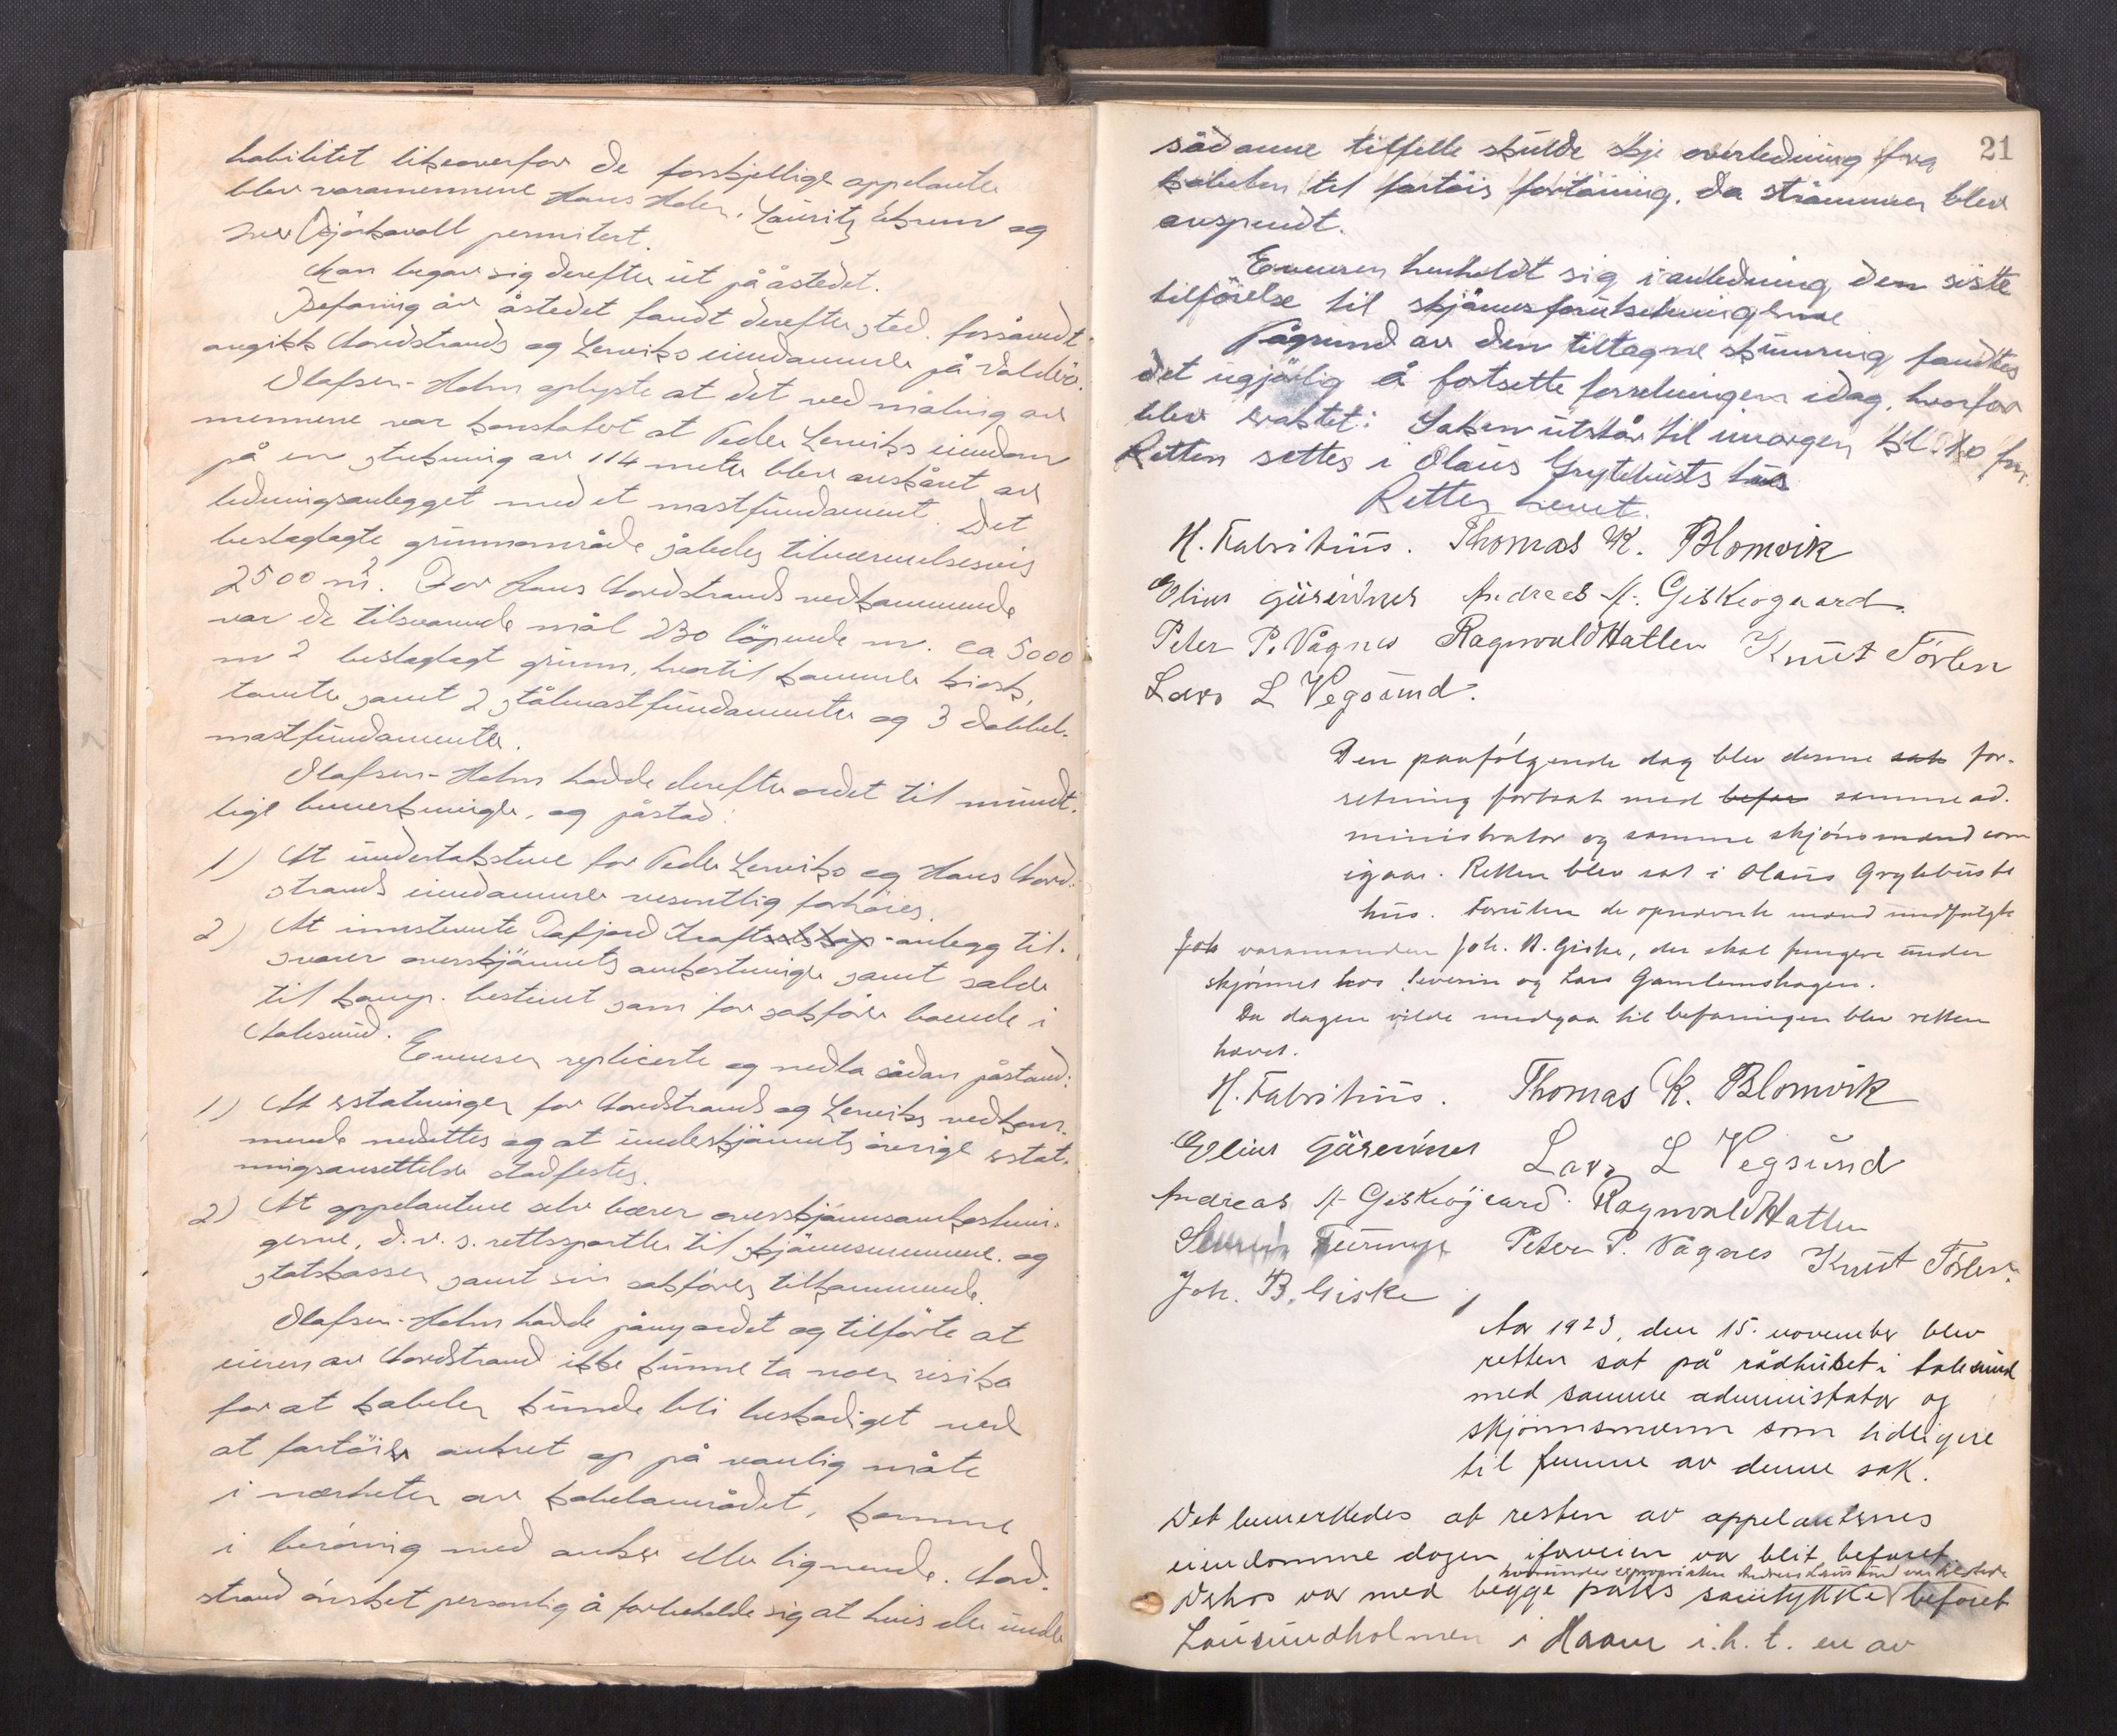 habilitet likeoverfor de forskjellige appelanter
blev varamennene Hans Holen, Lauritz Ekrem og
Iver Djöskavoll permitert.
Man begav sig derefter ut på åstedet.
Befaring av åstedet fandt derefter sted forsåvidt
angikk Nordstrands og Lerviks eiendommer på Valderö.
Olafsen-Holm oplyste at det ved måling av
mennene var konstatert at Peder Lerviks eiendom
på en strekning av 114 meter blev avskåret av
ledningsanlegget med et mastfundament. Det
beslaglagte grunnområde således tilnærmelsesvis
2500 m². For Hans Nordstrands vedkommende
var de tilsvarende mål 230 löpende m. ca 5000
m² beslaglagt grunn, hvortil kommer kiosk,
tomter samt 2 stålmastfundamenter og 3 dobbel-
mastfundamenter.
Olafsen-Holm hadde derefter ordet til mundt-
lige bemerkninger, og påstod:
1) At undertakstene for Peder Lerviks og Hans Nord-
strands eiendommer vesentlig forhöies.
2) At innstevnte Tafjord Kraftselskap-anlegg til-
svarer overskjönnets omkostninger samt salær
til komp. bestemt som for sakförer boende i
Aalesund.
Evensen replicerte og nedla sådan påstand:
1) At erstatningen for Nordstrands og Lerviks vedkom-
mende nedsettes og at underskjönnets övrige erstat-
ningsansettelser stadfestes.
2) At appelantene selv bærer overskjönnsomkostnin-
gerne, d.v.s. rettssportler til skjönnsmennene og
statskassen samt sin sakförer tilkommende.
Olafsen-Holm hadde påny ordet og tilförte at
eieren av Nordstrand ikke kunne ta noen risiko
for at kabelen kunde bli beskadiget ved
at fartöier ankret op på vanlig måte
i nærheten av kabelområdet, komme
i beröring med anker eller lignende. Nord-
strand önsket personlig å forbeholde sig at hvis der under
21
sådanne tilfelle skulde skje overledning fra
kabelen til fartöis fortöining, da strömmen blev
avspendt.
Evensen henholdt sig i anledning den siste
tilförelse til skjönnsforutsetningene
Pågrund av den tiltagne skumring fandtes
det ugjörlig å fortsette forretningen idag, hvorfor
blev vraktet: Saken utstår til imorgen kl. 10 fm.
Retten settes i Olaus Grytebusts hus
Retten hevet.
H. Fabritius. Thomas K. Blomvik
Elias Gåseidnes Andreas A. Geskeøgaard.
Peter P. Vågnes Ragnvald Hatlen Knut Töslen
Lars L Vegsund.
Den paafölgende dag blev denne sak for-
retning fortsat med befar samme ad-
ministrator og samme skjönsmænd som
igaar. Retten blev sat i Olaus Grytebusts
hus. Foruten de opnævnte mænd medfulgte
Joh varamanden Joh. B. Giske, der skal fungere under
skjönnet hos Severin og Lars Gamlemshagen.
Da dagen vilde medgaa til befaringen blev retten
hævet.
H. Fabritius. Thomas K. Blomvik
Elias Gåseidnes Lars L Vegsund
Andreas A Geskeøgaard. Ragnvald Hatlen
Peter P. Vågnes Knut Töslen
Joh. B. Giske
Aar 1923, den 15. november blev
retten sat på rådhuset i Aalesund
med samme administrator og
skjönnsmenn som tidligere
til fremme av denne sak.
Det bemerkedes at resten av appelantenes
eiendomme dagen iforveien var blit befaret
hvorunder expropriaten Andreas var tilstede
Dehos var med begge parters samtykke befaret
Lausundholmen i Haram i.h.t. en av